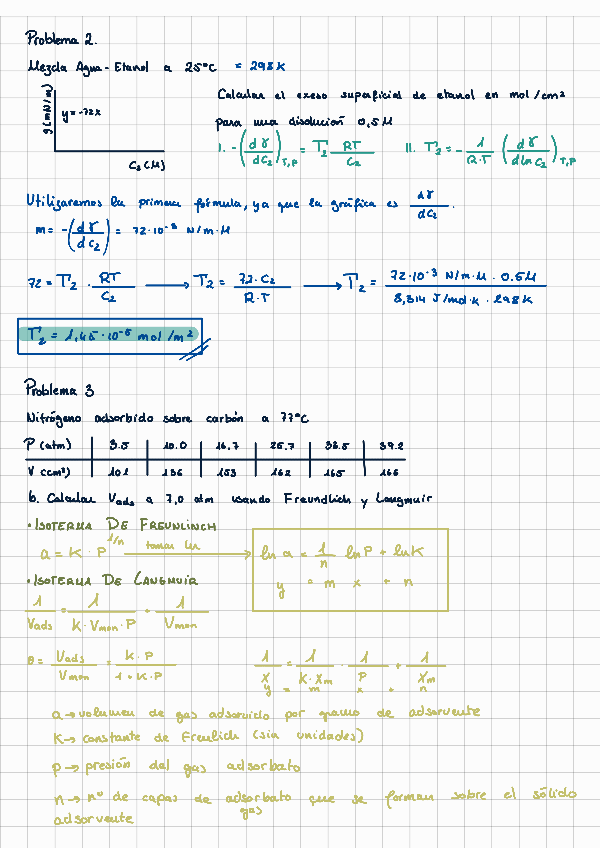 Problema 2.
Mezcla Agua - Etanol a 25°C = 298K
γ(mN/m)
y = -72x
C₂ (M)
Calcular el exeso superficial de etanol en mol/cm²
para una disolución 0,5M
I. -(dγ/dC₂)T,P = Γ₂ RT/C₂    II. Γ₂ = - 1/(R·T) (dγ/dln C₂)T,P
Utilizaremos la primera fórmula, ya que la gráfica es dγ/dC₂.
m = -(dγ/dC₂) = 72·10⁻³ N/m·M
72 = Γ₂ · RT/C₂ → Γ₂ = 72·C₂/R·T → Γ₂ = 72·10⁻³ N/m·M · 0.5M / 8,314 J/mol·K · 298K
Γ₂ = 1,45·10⁻⁵ mol/m²
Problema 3
Nitrógeno adsorbido sobre carbón a 77°C
P (atm) | 3.5 | 10.0 | 16.7 | 25.7 | 33.5 | 39.2
V (cm³) | 101 | 136 | 153 | 162 | 165 | 166
b. Calcular Vads a 7,0 atm usando Freundlich y Langmuir
• ISOTERMA DE FREUNLINCH
a = K · P^1/n tomar ln → ln a = 1/n ln P + ln K
y = m x + n
• ISOTERMA DE LANGMUIR
1/Vads = 1/(K·Vmon·P) + 1/Vmon
θ = Vads/Vmon = K·P/(1+K·P)    1/X = 1/(K·Xm) · 1/P + 1/Xm
y = m x + n
a → volumen de gas adsorvido por gramo de adsorvente
K → constante de Freulich (sin unidades)
p → presión del gas adsorbato
n → nº de capas de adsorbato que se forman sobre el sólido
gas
adsorvente